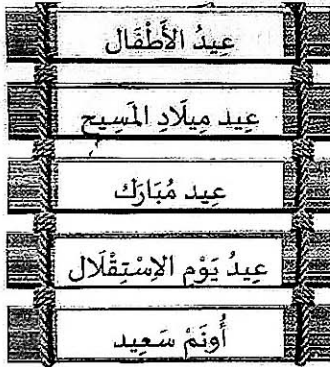 عِيدُ الأَطْفَال
عِيد مِيلَادِ المَسِيح
عِيد مُبَارَك
عِيدُ يَوْمِ الاِسْتِقْلَال
أُونَمْ سَعِيد